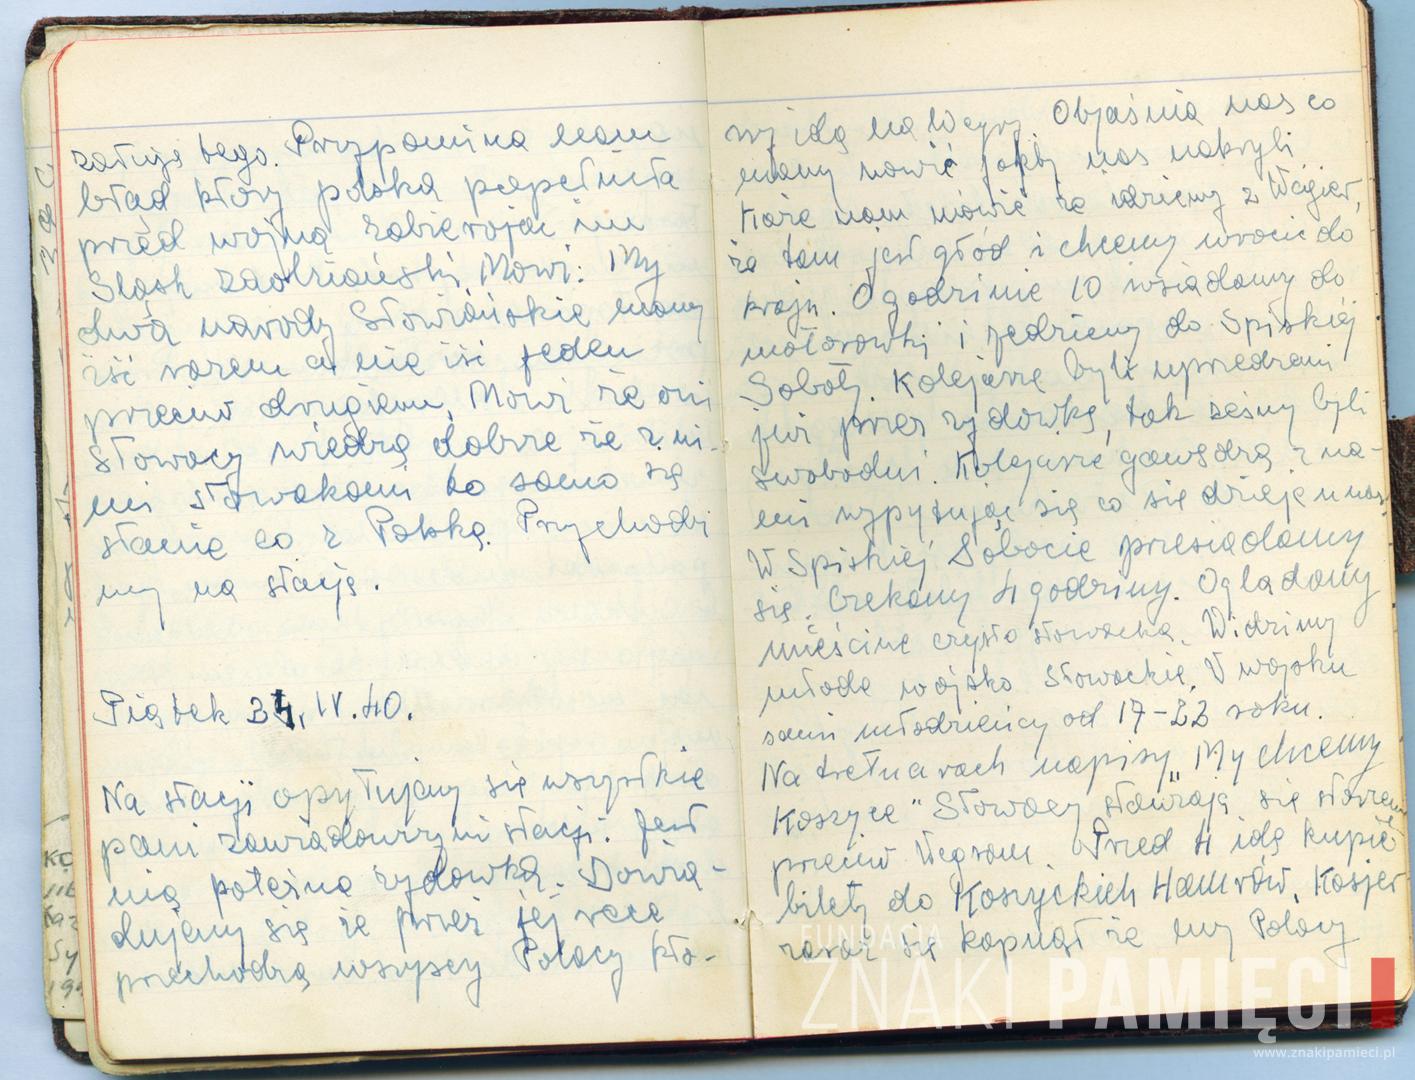 żałują tego. Przypomina nam
błąd który polska popełniła
przed wojną zabierając im
Śląsk zaolziański, Mówi: My
dwa narody Słowiańskie mamy
iść razem a nie iść jeden
przeciw drugiemu. Mówi że oni
Słowacy wiedzą dobrze że z ni-
mi słowakami to samo się
stanie co z Polską. Przychodzi
my na stację.
Piątek 34.IV.40.
Na stacji opytujemy się wszystkie
pani zawiadowczyni stacji. Jest
nią potężna żydówka. Dowia-
dujemy się że przez jej ręce
przechodzą wszyscy Polacy któ-
rzy idą na Węgry. Objaśnia nas co
mamy mówić jakby nas nakryli
Każe nam mówić że idziemy z Węgier,
że tam jest głód i chcemy wrócić do
kraju. O godzinie 10 wsiadamy do
motorówki i jedziemy do Spiskiej
Soboty. Kolejarze byli uprzedzeni
już przez żydówkę, tak żeśmy byli
swobodni. Kolejarze gawędzą z na-
mi wypytując się co się dzieje u nas.
W Spiskiej Sobocie przesiadamy
się. Czekamy 4 godziny. Oglądamy
mieścinę czysto słowacką. Widzimy
młode wojsko Słowackie. W wojsku
sami młodzieńcy od 17-22 roku.
Na tretuarach napisy „My chcemy
Koszyce" Słowacy stawiają się
przeciw Węgrom. Przed 4 idę kupić
bilety do Koszyckich Hamrów. Kasjer
zaraz się kapnął że my Polacy
FUNDACJA
ZNAKI PAMIĘCI
www.znakipamieci.pl